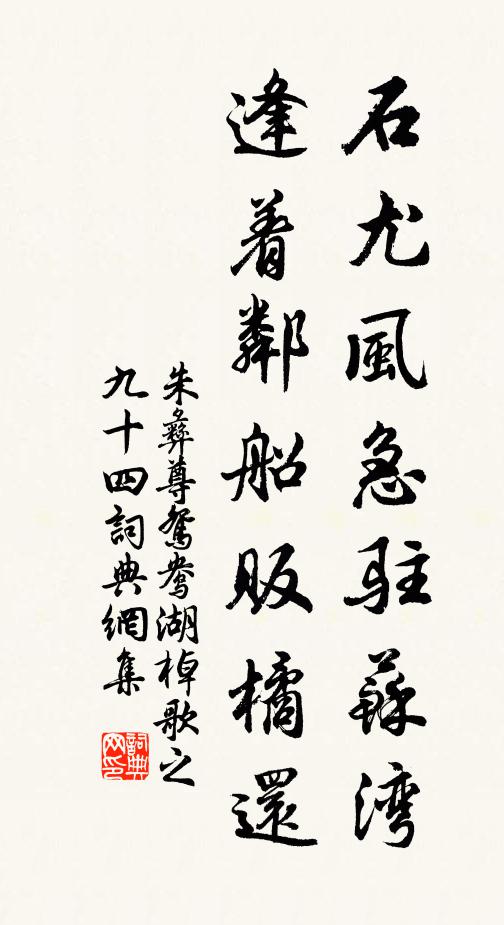 石尤風急駐蘇灣
逢着鄰船販橘還
朱彝尊鴛鴦湖棹歌之
九十四詞典網集
詞典網印